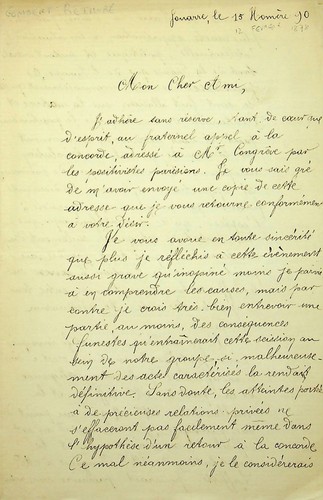 Jouarre, le 15 Homère 90
12 Février 1878
Mon Cher Ami,
J'adhère sans réserve, tant de cœur que
d'esprit, au fraternel appel à la
concorde, adressé à Mr. Congrève par
les positivistes parisiens. Je vous sais gré
de m'avoir envoyé une copie de cette
adresse que je vous retourne conformément
à votre désir.
Je vous avoue en toute sincérité
que plus je réfléchis à cette évènement
aussi grave qu'inopiné moins je parviens
à en comprendre les causes, mais par
contre je crois très-bien entrevoir une
partie, au moins, des conséquences
funestes qu'entraînerait cette scission au
sein de notre groupe, si, malheureuse-
ment des actes caractérisés la rendait
définitive. Sans doute, les atteintes portées
à de précieuses relations privées ne
s'effaceront pas facilement même dans
l'hypothèse d'un retour à la concorde
Ce mal néanmoins, je le considérerais